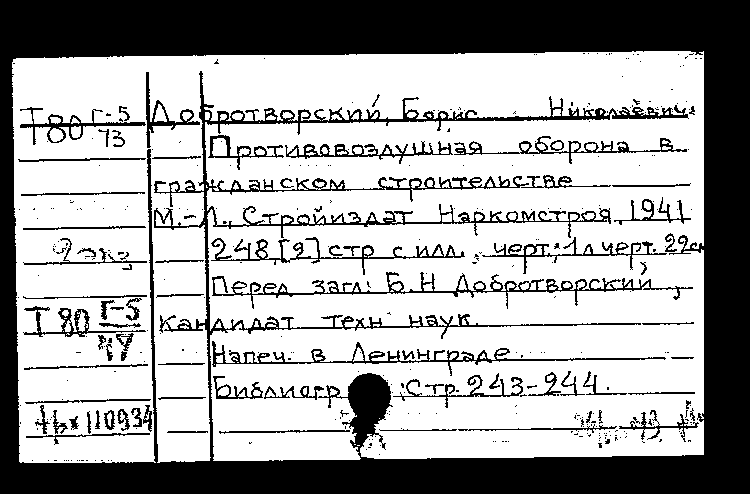 Т80 Г-5/73 Добротворский, Борис Николаевич.
Противовоздушная оборона в
гражданском строительстве
М.-Л., Стройиздат Наркомстроя, 1941
2 экз 248, [2] стр с илл., черт.; 1 л черт. 22см
Перед загл: Б.Н Добротворский,
Т80 Г-5/44 кандидат техн наук.
Напеч. в Ленинграде.
Библиогр.: Стр. 243-244.
110934